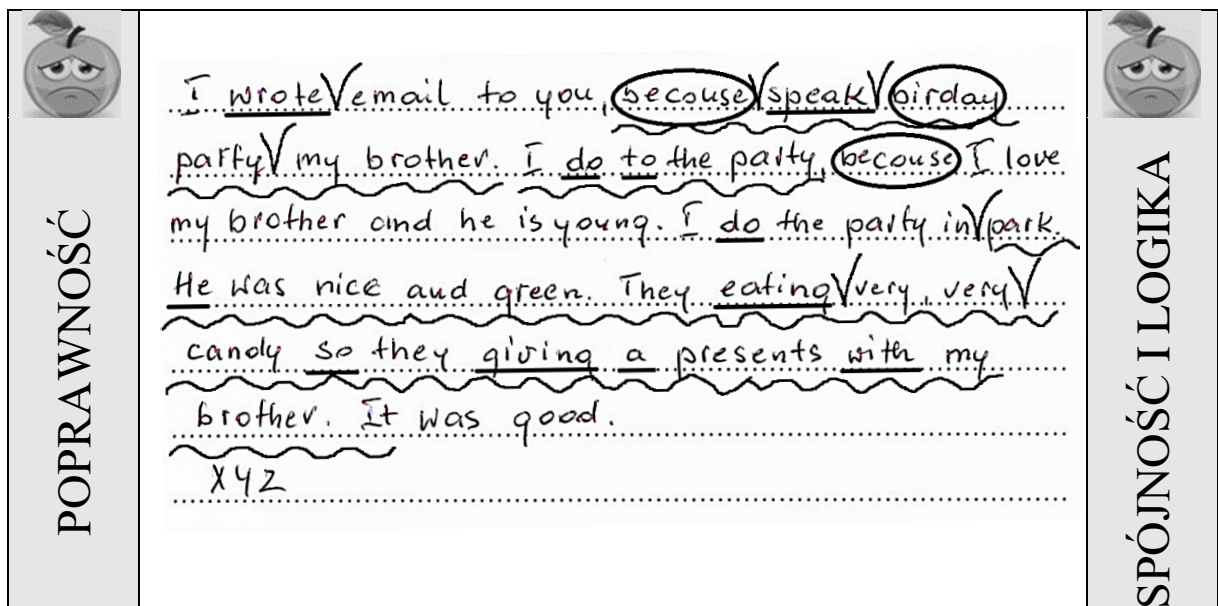 POPRAWNOŚĆ
I wrote V email to you, becouse V speak V birday
party V my brother. I do to the party, becouse I love
my brother and he is young. I do the party in V park.
He was nice and green. They eating V very, very V
candy so they giving a presents with my
brother. It was good.
XYZ
SPÓJNOŚĆ I LOGIKA